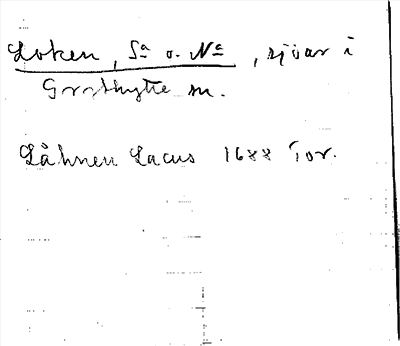 Loken, Sa o. Na, sjöar i
Grythytte sn.
Låhnen Lacus 1688 Tor.